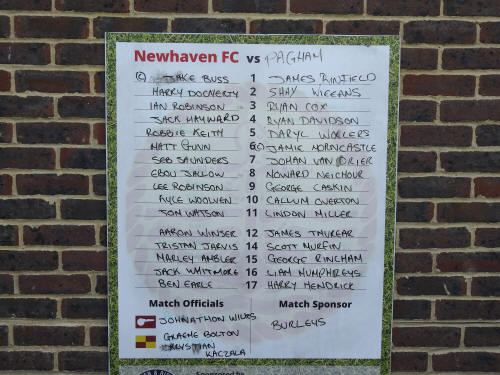 Newhaven FC vs PAGHAM
(C) JAKE BUSS 1 JAMES BINFIELD
HARRY DOCHERTY 2 SHAY WIGGANS
IAN ROBINSON 3 RYAN COX
JACK HAYWARD 4 RYAN DAVIDSON
ROBBIE KEITH 5 DARYL WOOLLERS
MATT GUNN 6 (C) JAMIE HORNCASTLE
SEB SAUNDERS 7 JOHAN VAN DRIER
EBOU JALLOW 8 HOWARD NEIGHOUR
LEE ROBINSON 9 GEORGE GASKIN
AYLE WOOLVEN 10 CALLUM OVERTON
TOM WATSON 11 LINDON MILLER
AARON WINSER 12 JAMES
TRISTAN JARVIS 14 SCOTT MURFIN
MARLEY AMBLER 15 GEORGE BINGHAM
JACK WHITMORE 16 LIAM HUMPHREYS
BEN EARLE 17 HARRY HENDRICK
Match Officials Match Sponsor
JOHNATHON BURLEYS
GRAEME BOLTON
KACZALA